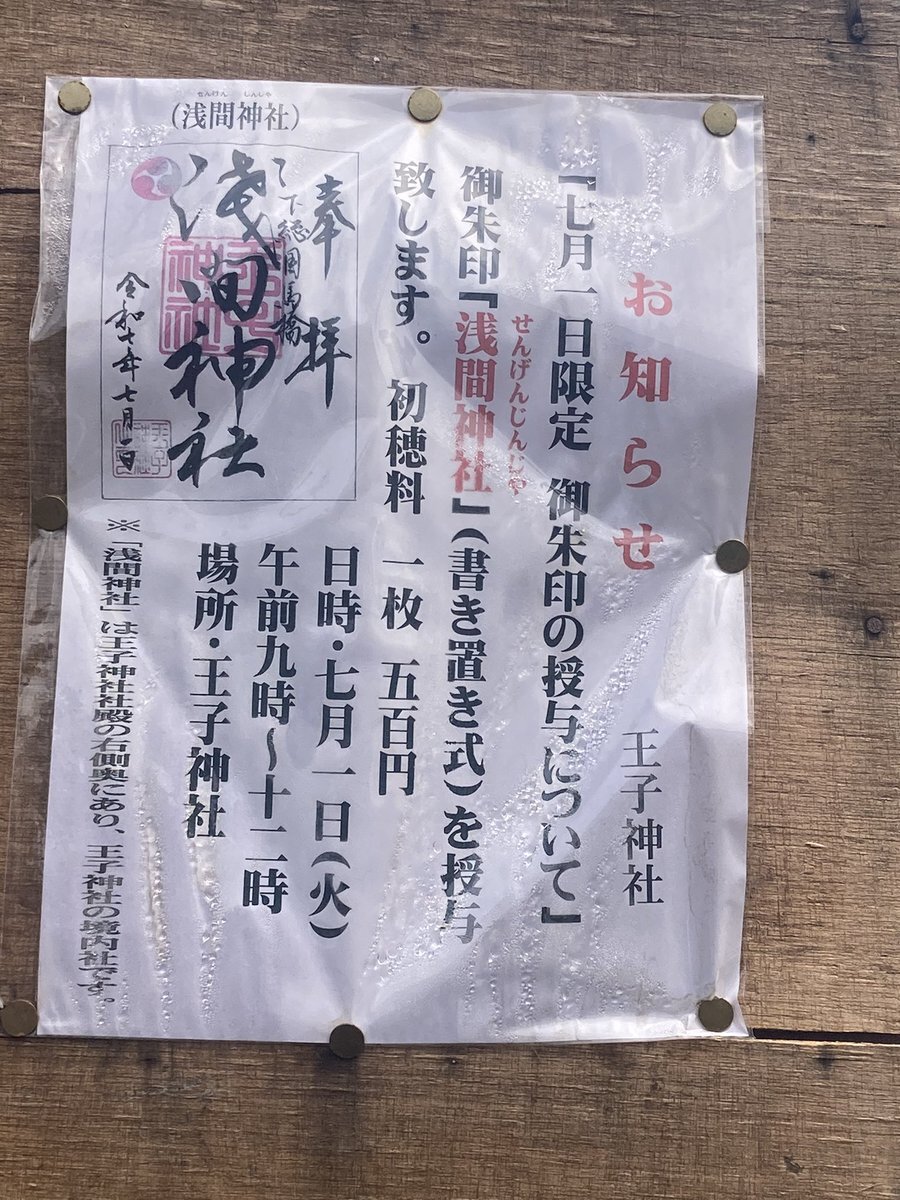 お知らせ
王子神社
『七月一日限定 御朱印の授与について』
せんげんじんじゃ
御朱印『浅間神社』(書き置き式)を授与
致します。 初穂料 一枚 五百円
日時・七月一日(火)
午前九時〜十二時
場所・王子神社
せんげん じんじゃ
(浅間神社)
奉拝
下総国馬橋
浅間神社
令和七年七月一日
※「浅間神社」は王子神社社殿の右側奥にあり、王子神社の境内社です。